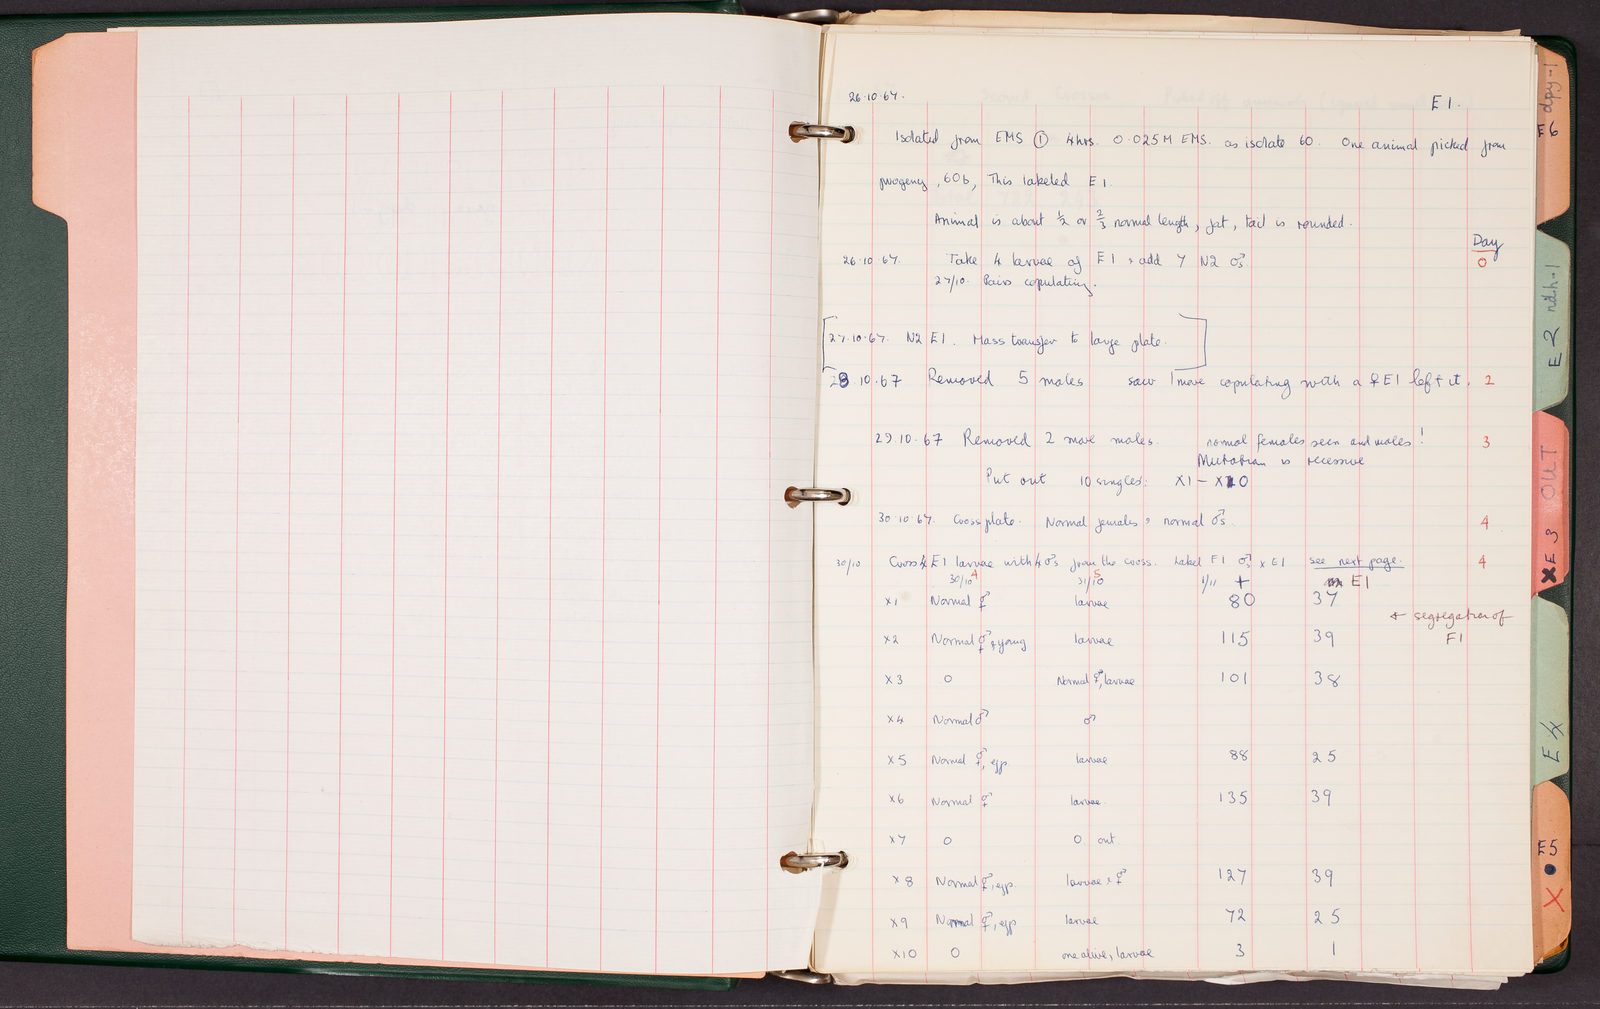 26.10.67.
E1.
Isolated from EMS ① 4hrs. 0.025M EMS. as isolate 60. One animal picked from
progeny, 60b, This labeled E1.
Animal is about ½ or ⅔ normal length, fat, tail is rounded.
Day
26.10.67. Take 4 larvae of E1 & add 7 N2 ♂s 0
27/10. Pairs copulating.
[27.10.67. N2 E1. Mass transfer to large plate.]
28.10.67 Removed 5 males saw 1 more copulating with a ♀ E1 left it. 2
29.10.67 Removed 2 more males. normal females seen and males! 3
Mutation is recessive
Put out 10 singles: X1 – X10
30.10.67. Cross plate. Normal females & normal ♂s. 4
30/10 Cross 4 E1 larvae with 4 ♂s from the cross. Label F1 ♂s x E1 see next page. 4
30/10 4 31/10 5 1/11 + E1
x1 Normal ⚥ larvae 80 37
← segregation of
F1
x2 Normal ⚥ & young larvae 115 39
x3 0 Normal ⚥, larvae 101 38
x4 Normal ♂ ♂
x5 Normal ⚥, egg. larvae 88 25
x6 Normal ⚥ larvae. 135 39
x7 0 0 out
x8 Normal ⚥, egg. larvae & ⚥ 127 39
x9 Normal ⚥, egg larvae 72 25
x10 0 one alive, larvae 3 1
E6 dpy-1
E2 ndh-1
XE3 OUT
E4
E5
X